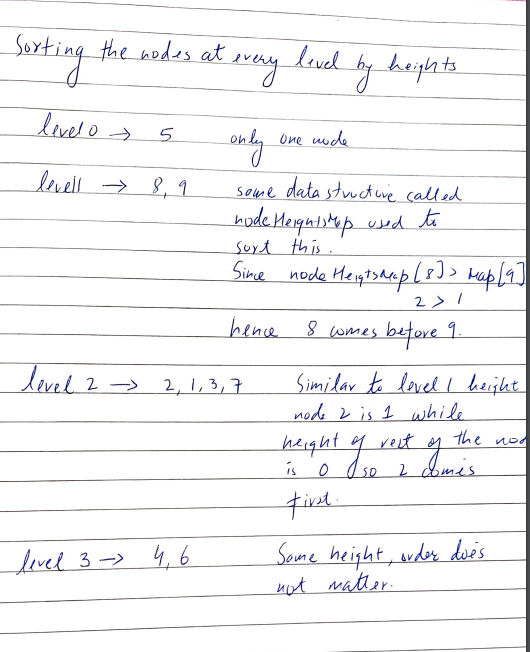 Sorting the nodes at every level by heights
level 0 → 5 only one node
level 1 → 8, 9 same data structure called
nodeHeightsMap used to
sort this.
Since nodeHeightsMap[8] > Map[9]
2 > 1
hence 8 comes before 9.
level 2 → 2, 1, 3, 7 Similar to level 1 height
node 2 is 1 while
height of rest of the nod
is 0 so 2 comes
first.
level 3 → 4, 6 Same height, order does
not matter.